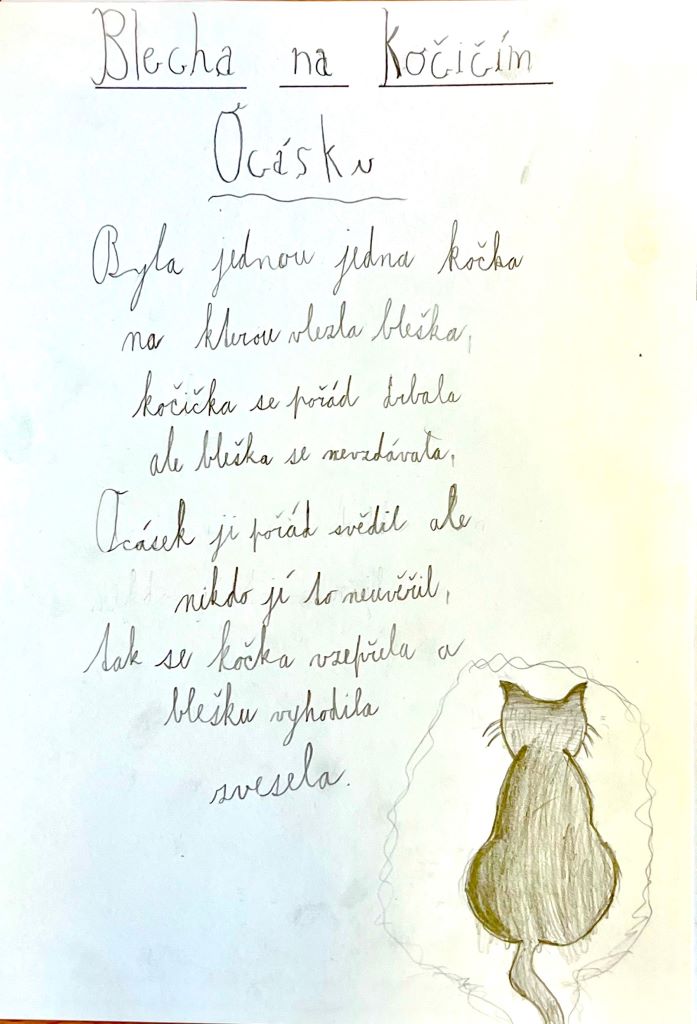 Blecha na Kočičím
Ocásku
Byla jednou jedna kočka
na kterou vlezla bleška,
kočička se pořád drbala
ale bleška se nevzdávala,
Ocásek ji pořád svědil ale
nikdo jí to neuvěřil,
tak se kočka vzepřela a
blešku vyhodila
zvesela.